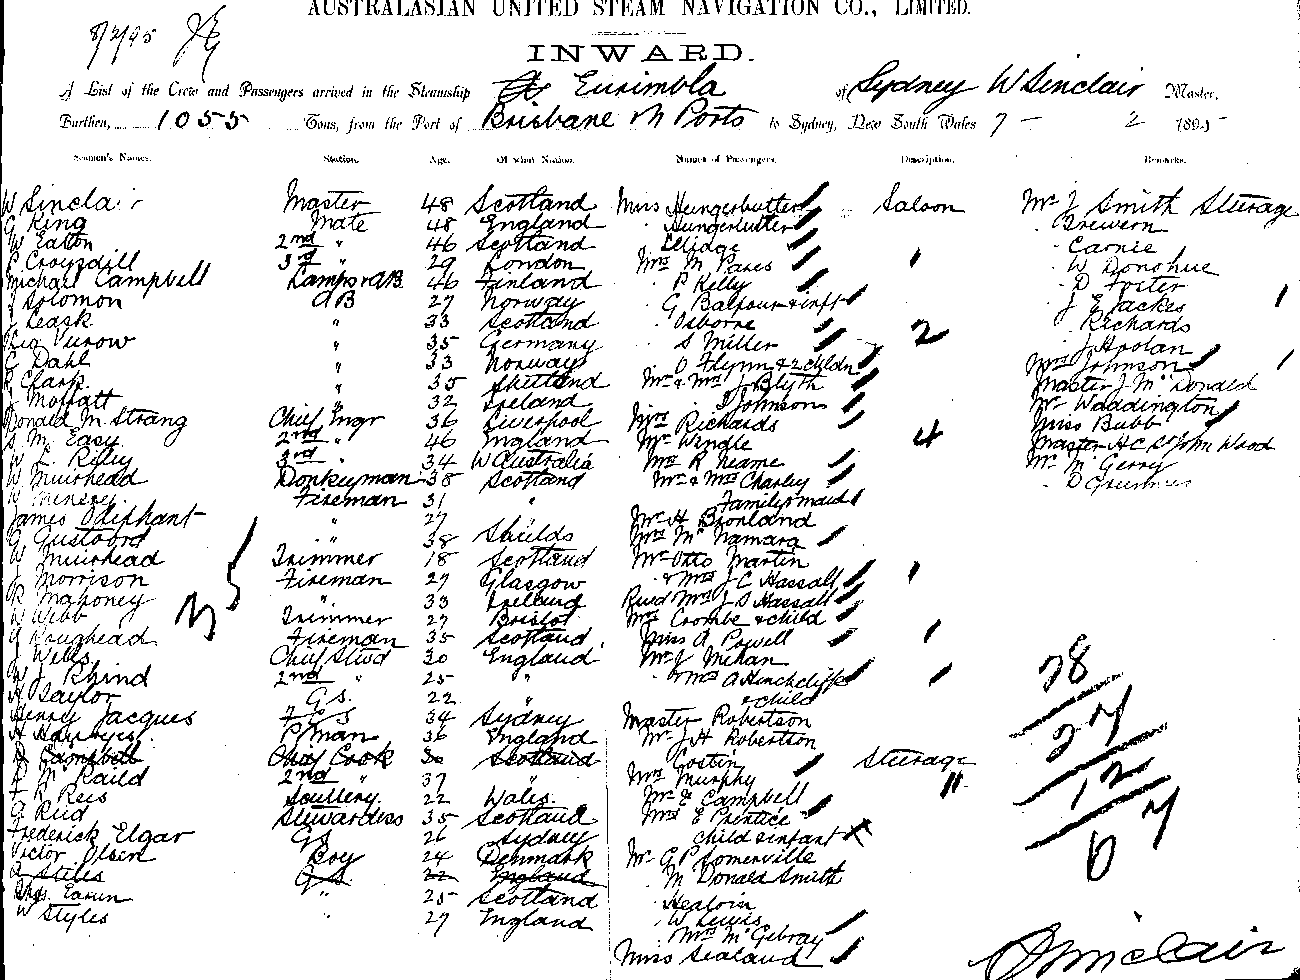 AUSTRALASIAN UNITED STEAM NAVIGATION CO., LIMITED.
8/2/95
INWARD.
A List of the Crew and Passengers arrived in the Steamship Eurimbla of Sydney W Sinclair Master,
Burthen, 1055 Tons, from the Port of Brisbane Ports to Sydney, New South Wales 7 - 2 1895
Seamen's Names. Station. Age. Of what Nation. Names of Passengers. Description. Remarks.
W Sinclair Master 48 Scotland
G King Mate 48 England
W Eaton 2nd " 46 Scotland
P Croysdill 3rd " 29 London
Michael Campbell Lamps & AB 46 Finland
J Solomon AB 27 Norway
J Leask " 33 Scotland
" 35 Germany
Dahl " 33 Norway
Clark " 35 Shetland
Moffatt " 32 Ireland
Donald M Strang Chief Engr 36 Liverpool
M Easy 2nd " 46 England
W L Riley 3rd " 34 W Australia
W Muirhead Donkeyman 38 Scotland
W Menzey Fireman 31 "
James Oliphant " 27
" 38 Shields
W Muirhead Trimmer 18 Scotland
J Morrison Fireman 29 Glasgow
R Mahoney " 33 Ireland
W Webb Trimmer 27 Bristol
Roughead Fireman 35 Scotland
J Wells Chief Stwd 30 England
W J Rhind 2nd " 25 "
H Taylor G.S. 22 "
Henry Jacques F C S 34 Sydney
P Man 36 England
D Campbell Chief Cook 30 Scotland
2nd " 37 "
Scullery 22 Wales.
G Reid Stewardess 35 Scotland
Frederick Elgar GS 26 Sydney
Victor Olsen Boy 24 Denmark
A Stiles GS 22 England
Chas. " 25 Scotland
W Styles " 27 England
Miss Hungerbutter Saloon
" Hungerbutter
" Ellidge
Mrs M Pares
" P Kelly
" G Balfour & inft
" Osborne
" S Miller 2
" O Flynn & 2 chldn
Mr & Mrs J Blyth
" J Johnson
Mrs Richards
Mr Windle 4
Mrs R Neame
Mr & Mrs Charley
Family & maid
Mr H
Mrs McNamara
Mr Otto Martin
" & Mrs J C Hassall
Revd Mrs J S Hassall
Mrs Crombe & child
Miss A Powell
Mr J Mehan
" & Mrs A Hinchcliffe
& child
Master Robertson
Mr J H Robertson
" Costin Steerage
Mrs Murphy 11
Mr E Campbell
Mrs E Prentice
child & infant
Mr G P Somerville
" M Donald Smith
" W Lewis
" Mrs
Miss Sealand
Mr J Smith Steerage
" Brewern
" Carnie
" W Donohue
" D Foster
" J E Jackes
" Richards
" J Hoolan
Mrs Johnson
Master J McDonald
Mr Waddington
Miss Bubb
Master H C St John Wood
Mr McGerry
28
27
12
67
W Sinclair